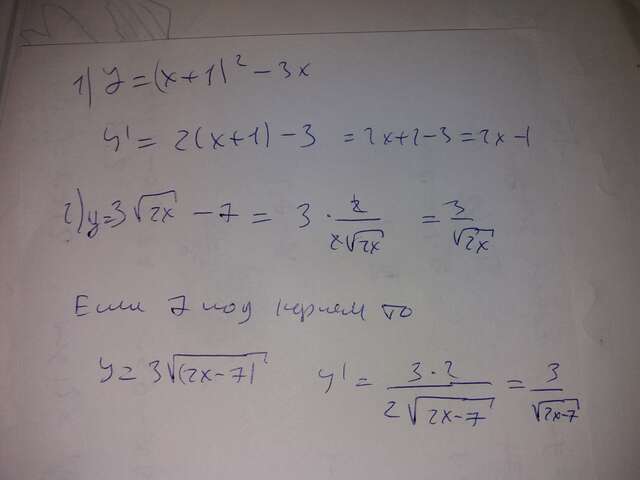 1) y = (x+1)² − 3x
y' = 2(x+1) − 3 = 2x+2−3 = 2x−1
2) y = 3√2x − 7 = 3 · 2/2√2x = 3/√2x
Если 7 под корнем то
y = 3√(2x−7) y' = 3·2/2√2x−7 = 3/√2x−7